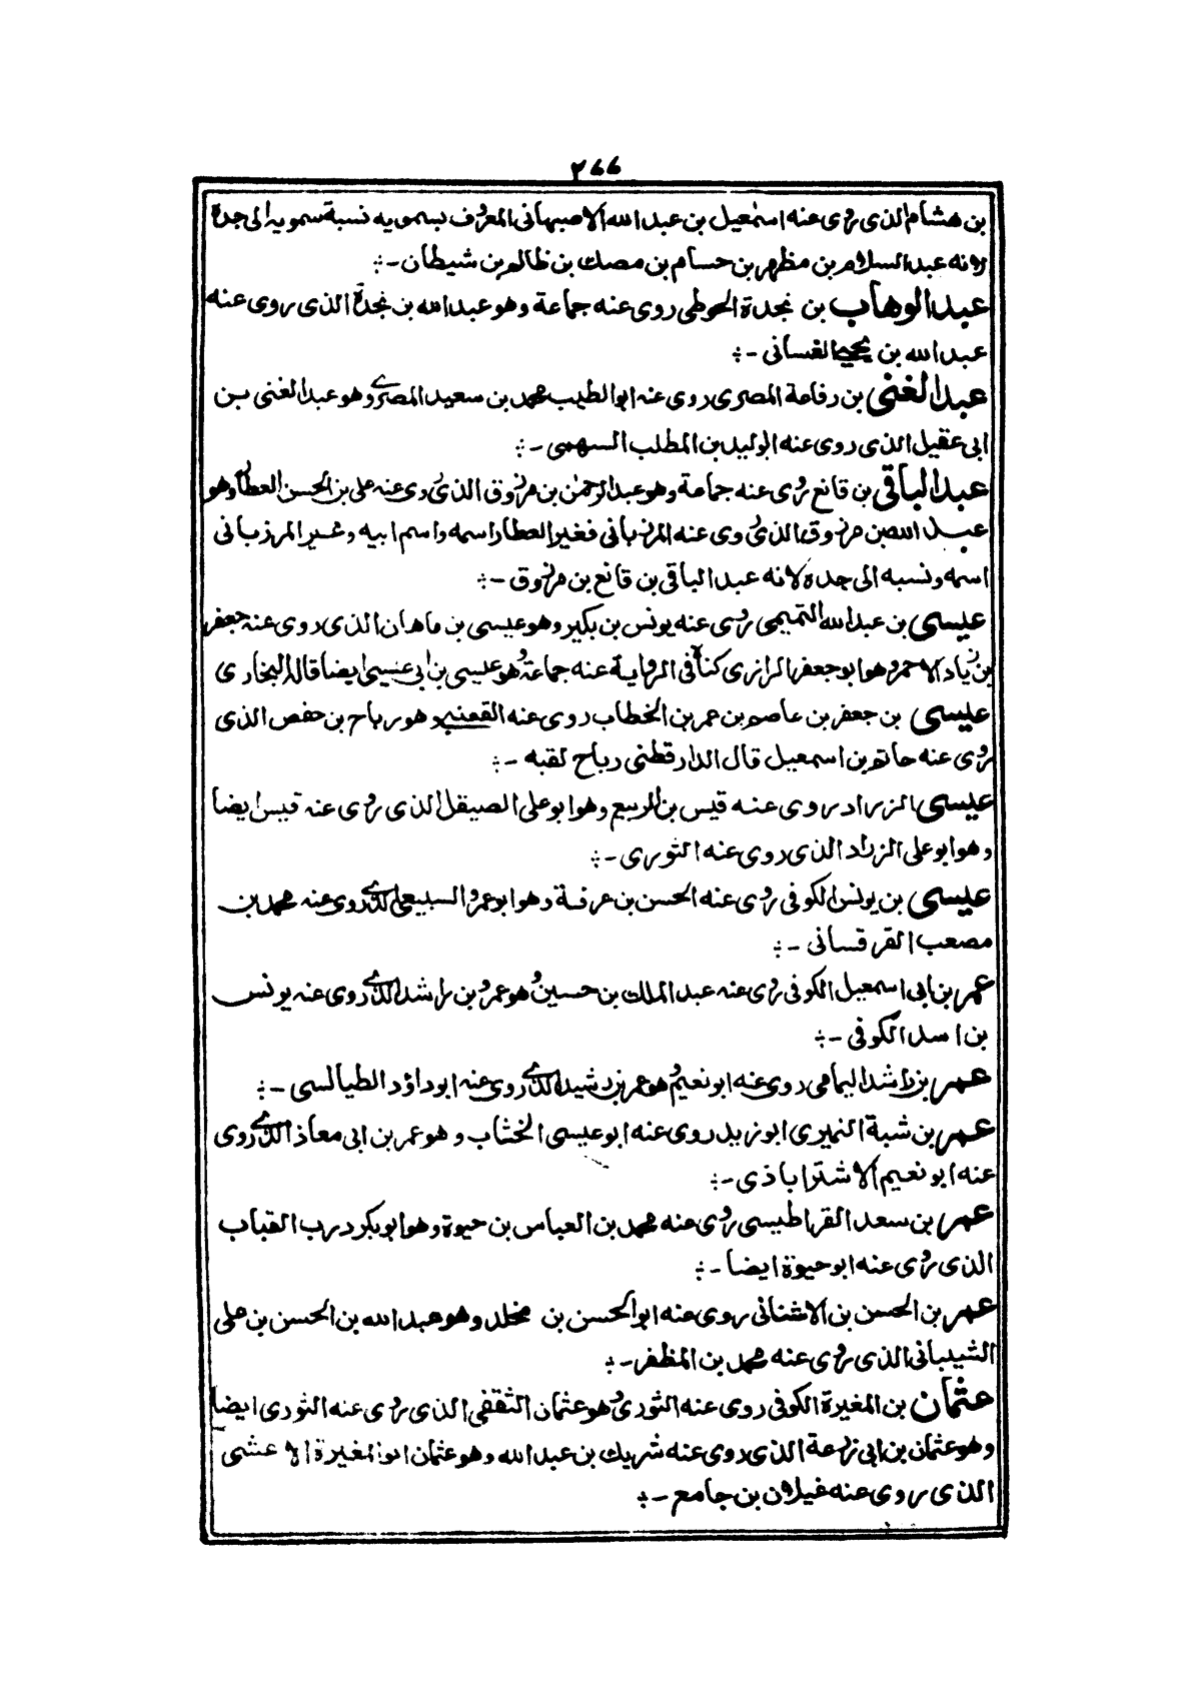 ٢٦٦
بن هشام الذى روى عنه اسمٰعيل بن عبد الله الاصبهانى المعروف بسمويه نسبة سمويه الى جدة
لانه عبد السلام بن مظهر بن حسام بن مصك بن ظالم بن شيطان -:
عبد الوهاب بن نجدة الحوطى روى عنه جماعة وهو عبد الله بن نجدة الذى روى عنه
عبد الله بن يحيى الغسانى -:
عبد الغنى بن رفاعة المصرى روى عنه ابو الطيب محمد بن سعيد المصرى وهو عبد الغنى بن
ابى عقيل الذى روى عنه الوليد بن المطلب السهمى -:
عبد الباقى بن قانع روى عنه جماعة وهو عبد الرحمٰن بن مرزوق الذى روى عنه على بن الحسن العطار وهو
عبد الله بن مرزوق الذى روى عنه المرزبانى فغير العطار اسمه واسم ابيه وغير المرزبانى
اسمه ونسبه الى جده لانه عبد الباقى بن قانع بن مرزوق -:
عيسى بن عبد الله التميمى روى عنه يونس بن بكير وهو عيسى بن ماهان الذى روى عنه جعفر
بن زياد الاحمر وهو ابو جعفر الرازى كناه فى الرواية عنه جماعة وهو عيسى بن ابى عيسى ايضا قاله البخارى
عيسى بن جعفر بن عاصم بن عمر بن الخطاب روى عنه القعنبى وهو رباح بن حفص الذى
روى عنه حاتم بن اسمعيل قال الدارقطنى رباح لقبه -:
عيسى الزراد روى عنه قيس بن الربيع وهو ابو على الصيقل الذى روى عنه قيس ايضا
وهو ابو على الزراد الذى روى عنه الثورى -:
عيسى بن يونس الكوفى روى عنه الحسن بن عرفة وهو ابو عمرو السبيعى الذى روى عنه محمد بن
مصعب القرقسانى -:
عمر بن ابى اسمعيل الكوفى روى عنه عبد الملك بن حسين وهو عمرو بن راشد الذى روى عنه يونس
بن اسد الكوفى -:
عمر بن راشد اليمامى روى عنه ابو نعيم وهو عمر بن رشيد الذى روى عنه ابو داؤد الطيالسى -:
عمر بن شبة النميرى ابو زيد روى عنه ابو عيسى الخشاب وهو عمر بن ابى معاذ الذى روى
عنه ابو نعيم الاشتراباذى -:
عمر بن سعد القراطيسى روى عنه محمد بن العباس بن حيوة وهو ابو بكر درب القباب
الذى روى عنه ابو حيوة ايضا -:
عمر بن الحسن بن الاشنانى روى عنه ابو الحسن بن مخلد وهو عبد الله بن الحسن بن على
الشيبانى الذى روى عنه محمد بن المظفر -:
عثمان بن المغيرة الكوفى روى عنه الثورى وهو عثمان الثقفى الذى روى عنه الثورى ايضا
وهو عثمان بن ابى زرعة الذى روى عنه شريك بن عبد الله وهو عثمان ابو المغيرة الاعشى
الذى روى عنه غيلان بن جامع -: